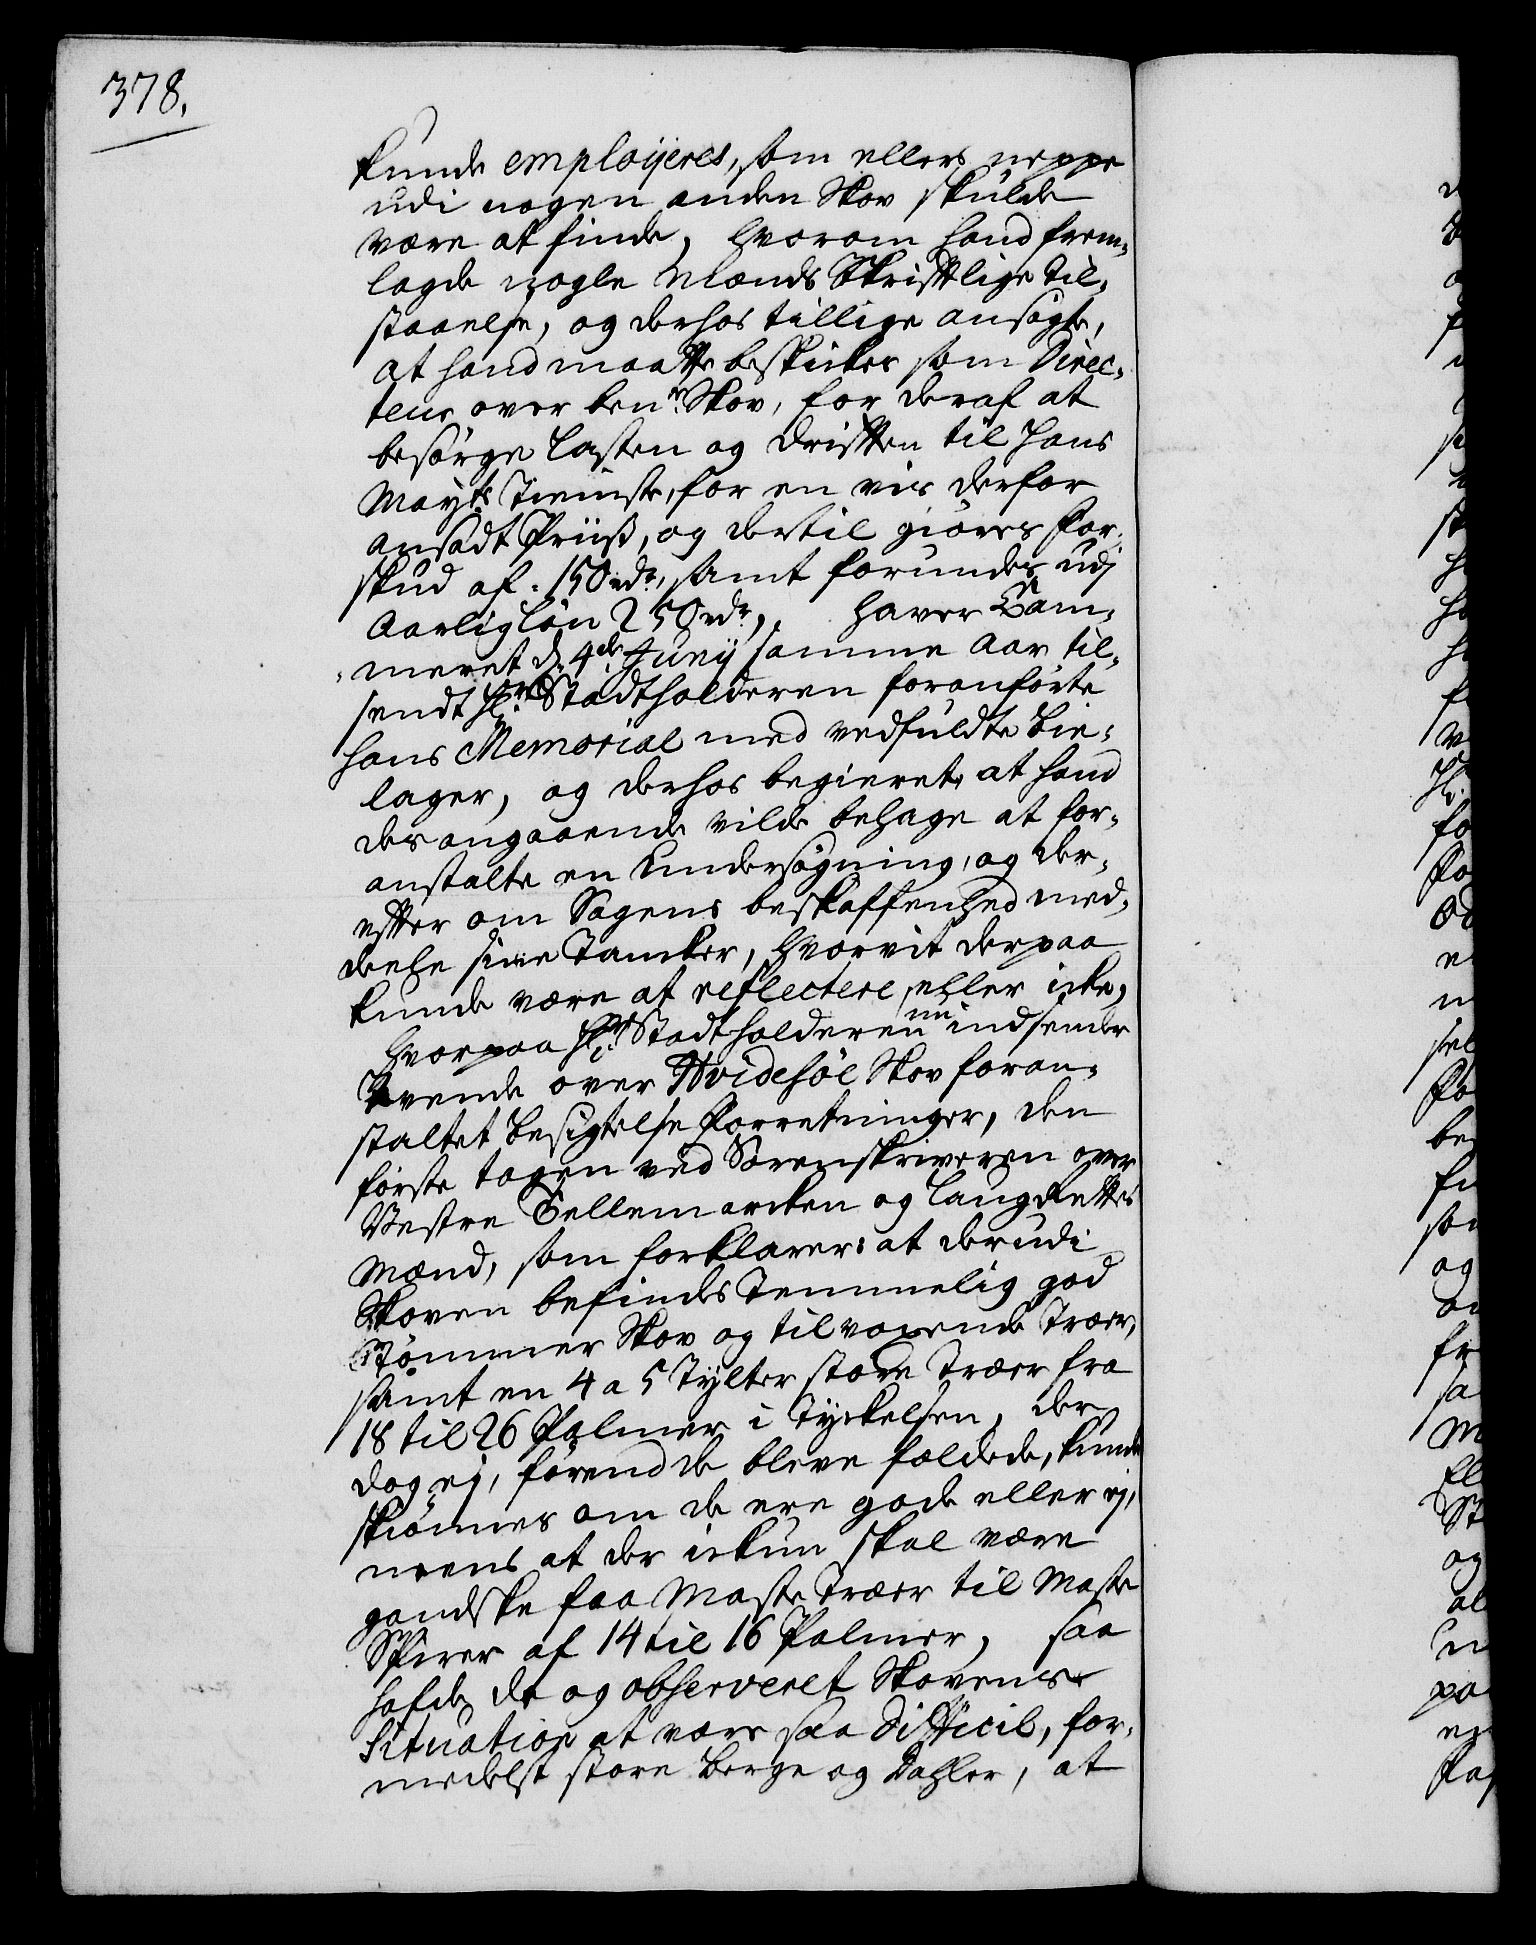 378.
kunde employeres, som ellers neppe
udi nogen anden Skov skulde
være at finde, hvorom hand frem-
lagde nogle Mænds Skriftlige Til-
staaelse, og derhos tillige ansøgte,
at hand maatte beskickes som Direc-
teur over benr. Skov, for deraf at
besørge Lasten og Driften til Hans
Mayts. Tieniste, for en vis derfor
ansadt Priiß, og dertil giøres For-
skud af 150 rdr., samt forundes udi
Aarlig Løn 250 rdr., haver Cam-
meret d. 4de Junij samme Aar til-
sendt Hr. Stadtholderen foranførte
hans Memorial med vedfuldte Bie-
lager, og derhos begieret, at hand
des angaaende vilde behage at for-
anstalte en Undersøgning, og der-
efter om Sagens beskaffenhed med-
deele sine Tancker, hvorvit derpaa
kunde være at reflectere, eller icke,
hvorpaa Hr. Stadtholderen nu indsender
Tvende over Hvidesøe Skov foran-
staltet Besigtelse Forretninger, den
første tagen ved Sorenskriveren over
Vestre Tellemarcken og Laugrettes
Mænd, som forklarer: at derudi
Skoven befindes Temmelig god
Tømmer Skov og tilvoxende Træer,
samt en 4 a 5 Tylter store Træer fra
18 til 26 Palmer i Tyckelsen, der
dog ej, førend de bleve fældede, kunde
skiønnes om de ere gode eller ej,
meens at der ickun skal være
gandske faa Maste Træer til Maste
Spirer af 14 til 16 Palmer, saa
hafde de og observeret Skovens
Situation at være saa Difficil, for-
medelst store Berge og Dahler, at